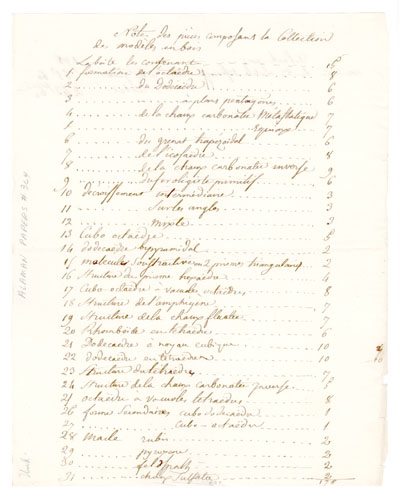 Note des pièces composant la Collection
de modèles en bois
La boite les contenant
1 formation de l'octaèdre 8
2 du Dodécaèdre 6
3 à plans pentagones 6
4 de la chaux carbonatée Métastatique 7
5 Equiaxe 7
6 du grenat trapézoidal 6
7 de l'icosaèdre
8 de la chaux carbonatée inverse
9 du fer oligiste primitif 6
10 décroissement intermédiaire 3
11 Sur les angles 3
12 Mixte 3
13 Cubo octaèdre 3
14 dodécaèdre bipyramidal 2
15 molécule soustractive en 2 prismes triangulaires 2
16 Structure du prisme hexaèdre 4
17 Cubo octaèdre à vacuoles octaèdres 8
18 Structure de l'amphigène 7
19 Structure de la chaux fluatée 7
20 Rhomboïde en tétraèdres 6
21 Dodécaèdre à noyau cubique 10
22 dodécaèdre en tétraèdres 10
23 Structure du tétraèdre 7
24 Structure de la chaux carbonatée inverse
25 octaèdre à vacuoles tétraèdres 8
26 forme secondaire cubo-dodécaèdre 1
27 Cubo-octaèdre 1
28 Macle rubis 2
29 pyroxène 2
30 feldspath 2
31 chaux sulfatée 2
ALAMAN PAPERS #364